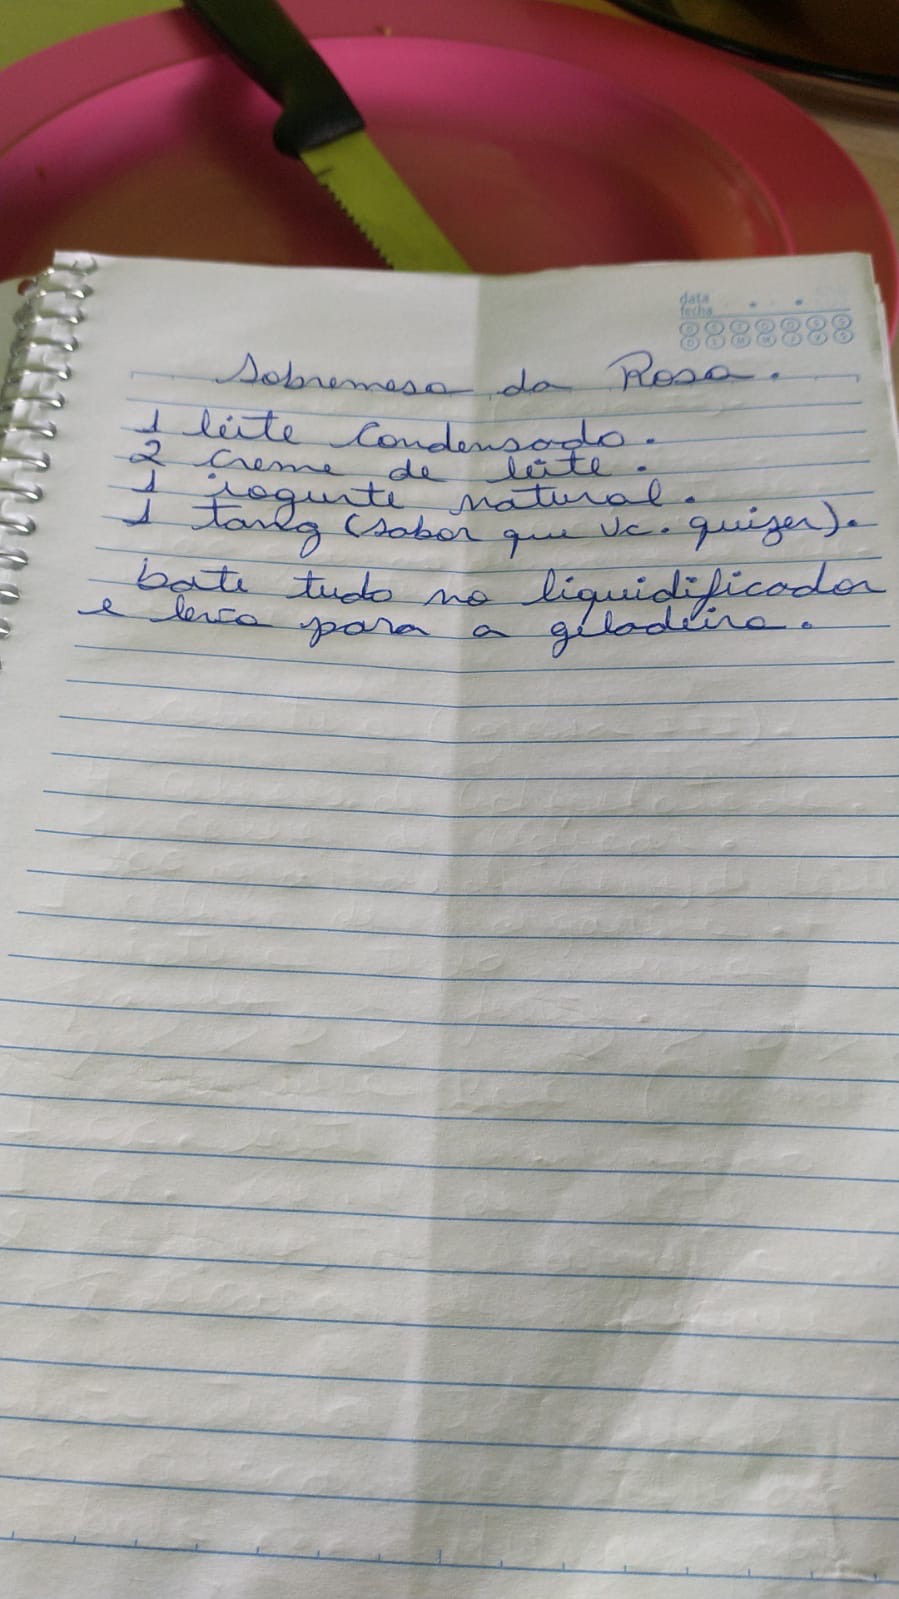 data
fecha
D S T Q Q S S
D L M M J V S
Sobremesa da Rosa.
1 leite condensado.
2 creme de leite.
1 iogurte natural.
1 tang (sabor que vc. quizer).
bate tudo no liquidificador
e leva para a geladeira.